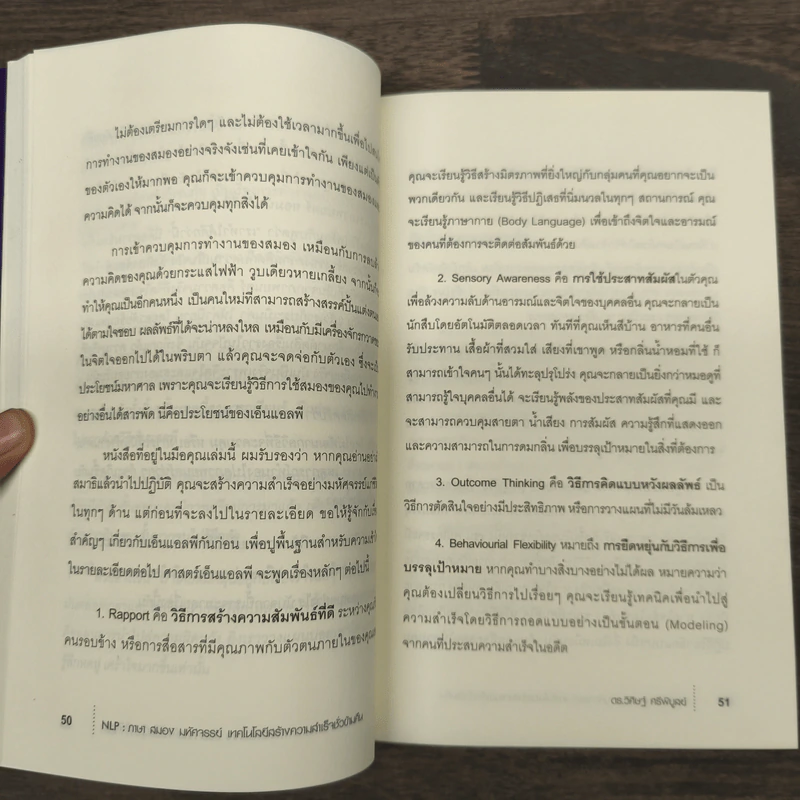 ไม่ต้องเตรียมการใดๆ และไม่ต้องใช้เวลามากขึ้นเพื่อ
การทำงานของสมองอย่างจริงจังเช่นที่เคยเข้าใจกัน เพียงแต่
ของตัวเองให้มากพอ คุณก็จะเข้าควบคุมการทำงานของสมอง
ความคิดได้ จากนั้นก็จะควบคุมทุกสิ่งได้
การเข้าควบคุมการทำงานของสมอง เหมือนกับการ
ความคิดของคุณด้วยกระแสไฟฟ้า วูบเดียวหายเกลี้ยง จากนั้น
ทำให้คุณเป็นอีกคนหนึ่ง เป็นคนใหม่ที่สามารถสร้างสรรค์ปั้นแต่ง
ได้ตามใจชอบ ผลลัพธ์ที่ได้จะน่าหลงใหล เหมือนกับมีเครื่องจักร
ในจิตใจออกไปได้ในพริบตา แล้วคุณจะจดจ่อกับตัวเอง ซึ่งจะ
ประโยชน์มหาศาล เพราะคุณจะเรียนรู้วิธีการใช้สมองของคุณไป
อย่างอื่นได้สารพัด นี่คือประโยชน์ของเอ็นแอลพี
หนังสือที่อยู่ในมือคุณเล่มนี้ ผมรับรองว่า หากคุณอ่าน
สมาธิแล้วนำไปปฏิบัติ คุณจะสร้างความสำเร็จอย่างมหัศจรรย์
ในทุกๆ ด้าน แต่ก่อนที่จะลงไปในรายละเอียด ขอให้รู้จักกับ
สำคัญๆ เกี่ยวกับเอ็นแอลพีกันก่อน เพื่อปูพื้นฐานสำหรับความ
ในรายละเอียดต่อไป ศาสตร์เอ็นแอลพี จะพูดเรื่องหลักๆ ต่อไปนี้
1. Rapport คือ วิธีการสร้างความสัมพันธ์ที่ดี ระหว่าง
คนรอบข้าง หรือการสื่อสารที่มีคุณภาพกับตัวตนภายในของคุณ
50 NLP : ภาษา สมอง มหัศจรรย์ เทคโนโลยีสร้างความสำเร็จชั่วข้ามคืน
คุณจะเรียนรู้วิธีสร้างมิตรภาพที่ยิ่งใหญ่กับกลุ่มคนที่คุณอยากจะเป็น
พวกเดียวกัน และเรียนรู้วิธีปฏิเสธที่นิ่มนวลในทุกๆ สถานการณ์ คุณ
จะเรียนรู้ภาษากาย (Body Language) เพื่อเข้าถึงจิตใจและอารมณ์
ของคนที่ต้องการจะติดต่อสัมพันธ์ด้วย
2. Sensory Awareness คือ การใช้ประสาทสัมผัสในตัวคุณ
เพื่อล้วงความลับด้านอารมณ์และจิตใจของบุคคลอื่น คุณจะกลายเป็น
นักสืบโดยอัตโนมัติตลอดเวลา ทันทีที่คุณเห็นสีบ้าน อาหารที่คนอื่น
รับประทาน เสื้อผ้าที่สวมใส่ เสียงที่เขาพูด หรือกลิ่นน้ำหอมที่ใช้ ก็
สามารถเข้าใจคนๆ นั้นได้ทะลุปรุโปร่ง คุณจะกลายเป็นยิ่งกว่าหมอดูที่
สามารถรู้ใจบุคคลอื่นได้ จะเรียนรู้พลังของประสาทสัมผัสที่คุณมี และ
จะสามารถควบคุมสายตา น้ำเสียง การสัมผัส ความรู้สึกที่แสดงออก
และความสามารถในการดมกลิ่น เพื่อบรรลุเป้าหมายในสิ่งที่ต้องการ
3. Outcome Thinking คือ วิธีการคิดแบบหวังผลลัพธ์ เป็น
วิธีการตัดสินใจอย่างมีประสิทธิภาพ หรือการวางแผนที่ไม่มีวันล้มเหลว
4. Behaviourial Flexibility หมายถึง การยืดหยุ่นกับวิธีการเพื่อ
บรรลุเป้าหมาย หากคุณทำบางสิ่งบางอย่างไม่ได้ผล หมายความว่า
คุณต้องเปลี่ยนวิธีการไปเรื่อยๆ คุณจะเรียนรู้เทคนิคเพื่อนำไปสู่
ความสำเร็จโดยวิธีการถอดแบบอย่างเป็นขั้นตอน (Modeling)
จากคนที่ประสบความสำเร็จในอดีต
ดร.วิศิษฐ์ ศรีพิบูลย์ 51